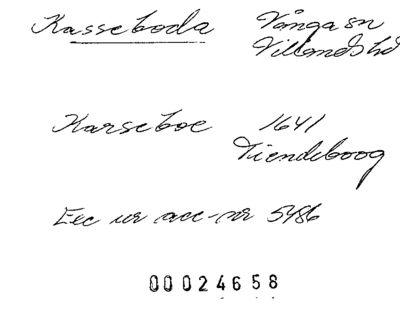 Kasseboda Vånga sn
Villands hd
Karseboe 1641
Tiendeboog
Exc ur acc-nr 5486
00024658